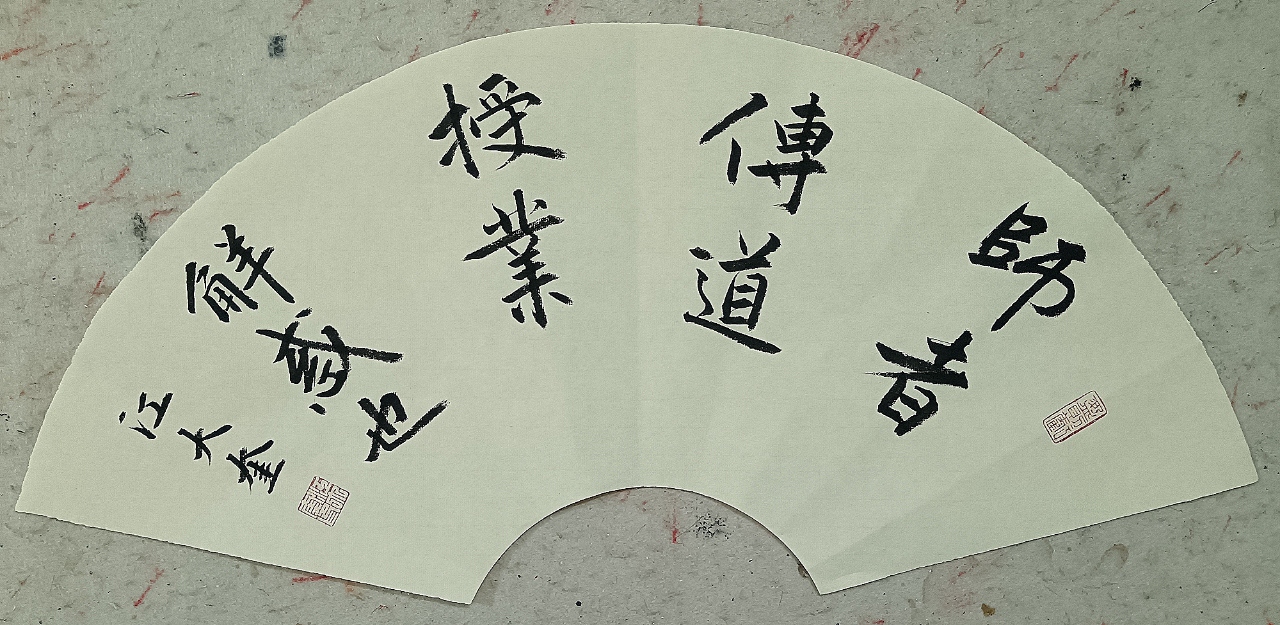 師者
傳道
授業
觧惑也
江大奎